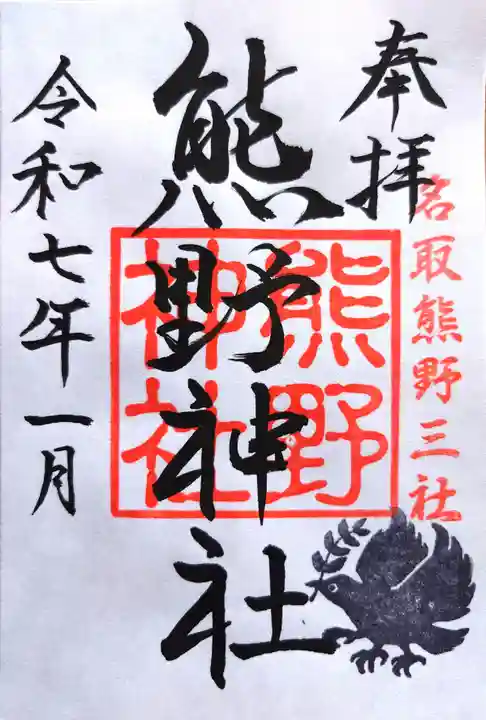 奉拝
名取熊野三社
熊野神社
熊野
神社
令和七年一月